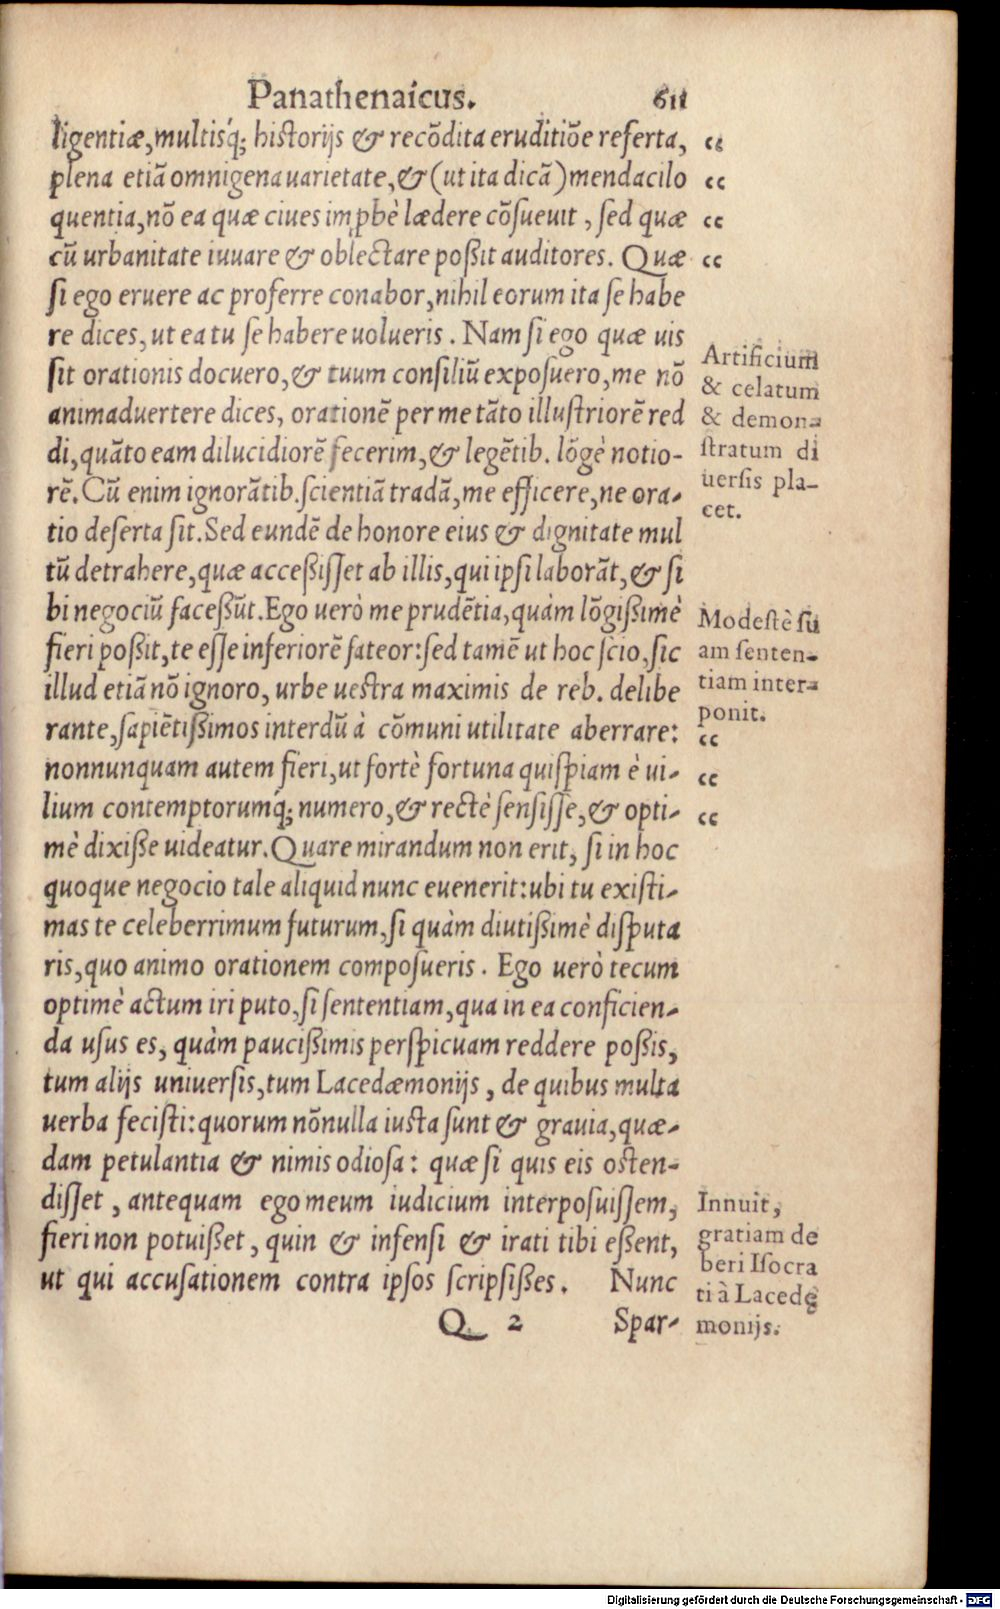 Panathenaicus. 611
ligentiæ, multisq́; historijs & recōdita eruditiōe referta, “
plena etiā omnigena uarietate, & (ut ita dicā) mendacilo “
quentia, nō ea quæ ciues impbè lædere cōsueuit, sed quæ “
cū urbanitate iuuare & oblectare poßit auditores. Quæ “
si ego eruere ac proferre conabor, nihil eorum ita se habe
re dices, ut ea tu se habere uolueris. Nam si ego quæ uis
sit orationis docuero, & tuum consiliū exposuero, me nō
animaduertere dices, orationē per me tāto illustriorē red
di, quāto eam dilucidiorē fecerim, & legētib. lōgè notio-
rē. Cū enim ignorātib. scientiā tradā, me efficere, ne ora-
tio deserta sit. Sed eundē de honore eius & dignitate mul
tū detrahere, quæ acceßisset ab illis, qui ipsi laborāt, & si
bi negociū faceßūt. Ego uerò me prudētia, quàm lōgißimè
fieri poßit, te esse inferiorē fateor: sed tamē ut hoc scio, sic
illud etiā nō ignoro, urbe uestra maximis de reb. delibe
rante, sapiētißimos interdū à cōmuni utilitate aberrare:
nonnunquam autem fieri, ut fortè fortuna quispiam è ui-
lium contemptorumq́; numero, & rectè sensisse, & opti-
mè dixiße uideatur. Quare mirandum non erit, si in hoc
quoque negocio tale aliquid nunc euenerit: ubi tu existi-
mas te celeberrimum futurum, si quàm diutißimè disputa
ris, quo animo orationem composueris. Ego uerò tecum
optimè actum iri puto, si sententiam, qua in ea conficien-
da usus es, quàm paucißimis perspicuam reddere poßis,
tum alijs uniuersis, tum Lacedæmonijs, de quibus multa
uerba fecisti: quorum nōnulla iusta sunt & grauia, quæ-
dam petulantia & nimis odiosa: quæ si quis eis osten-
disset, antequam ego meum iudicium interposuissem,
fieri non potuißet, quin & infensi & irati tibi eßent,
ut qui accusationem contra ipsos scripsißes. Nunc
Q 2 Spar-
Artificium
& celatum
& demon-
stratum di
uersis pla-
cet.
Modestè su
am senten-
tiam inter-
ponit.
“
“
“
Innuit,
gratiam de
beri Isocra
ti à Lacedę
monijs.
Digitalisierung gefördert durch die Deutsche Forschungsgemeinschaft - DFG